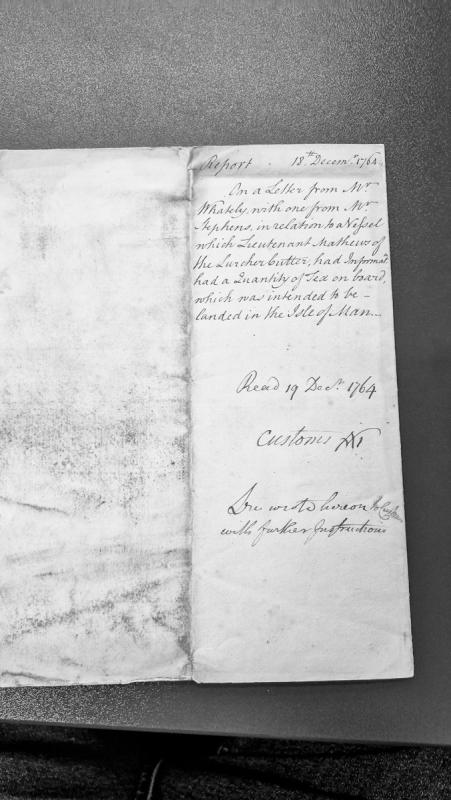 Report. 18th Decemr. 1764
On a Letter from Mr
Whately, with one from Mr
Stephens, in relation to a Vessel
which Lieutenant Mathews of
the Lurcher Cutter, had Informat.
had a Quantity of Tea on board,
which was intended to be -
landed in the Isle of Man.
Read 19 Decr. 1764
Customs
wrote hereon
with further Instructions